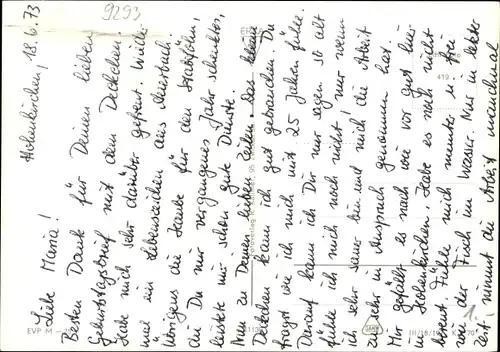 Hohenkirchen, 18.6.73
9293
Liebe Maria!
Besten Dank für Deinen lieben
Geburtstagsbrief mit dem Deckchen.
Habe mich sehr darüber gefreut. Wieder
mal ein Lebenszeichen aus Auerbach.
Übrigens die Haube für den Staßfön,
die Du mir vergangenes Jahr schenktest,
leistete mir schon gute Dienste.
Nun zu Deinen lieben Zeilen. Das kleine
Deckchen kann ich gut gebrauchen. Du
fragst wie ich mich mit 25 Jahren fühle.
Darauf kann ich Dir nur sagen so alt
fühle ich mich noch nicht, nur wenn
ich sehr sauer bin und mich die Arbeit
zu sehr in Anspruch genommen hat.
Mir gefällt es nach wie vor gut hier
in Hohenkirchen. Habe es noch nicht
bereut. Fühle mich munter u. frei
wie der Fisch im Wasser. Nur in letzter
Zeit nimmt die Arbeit manchmal
EVP M
III/18/19
1.